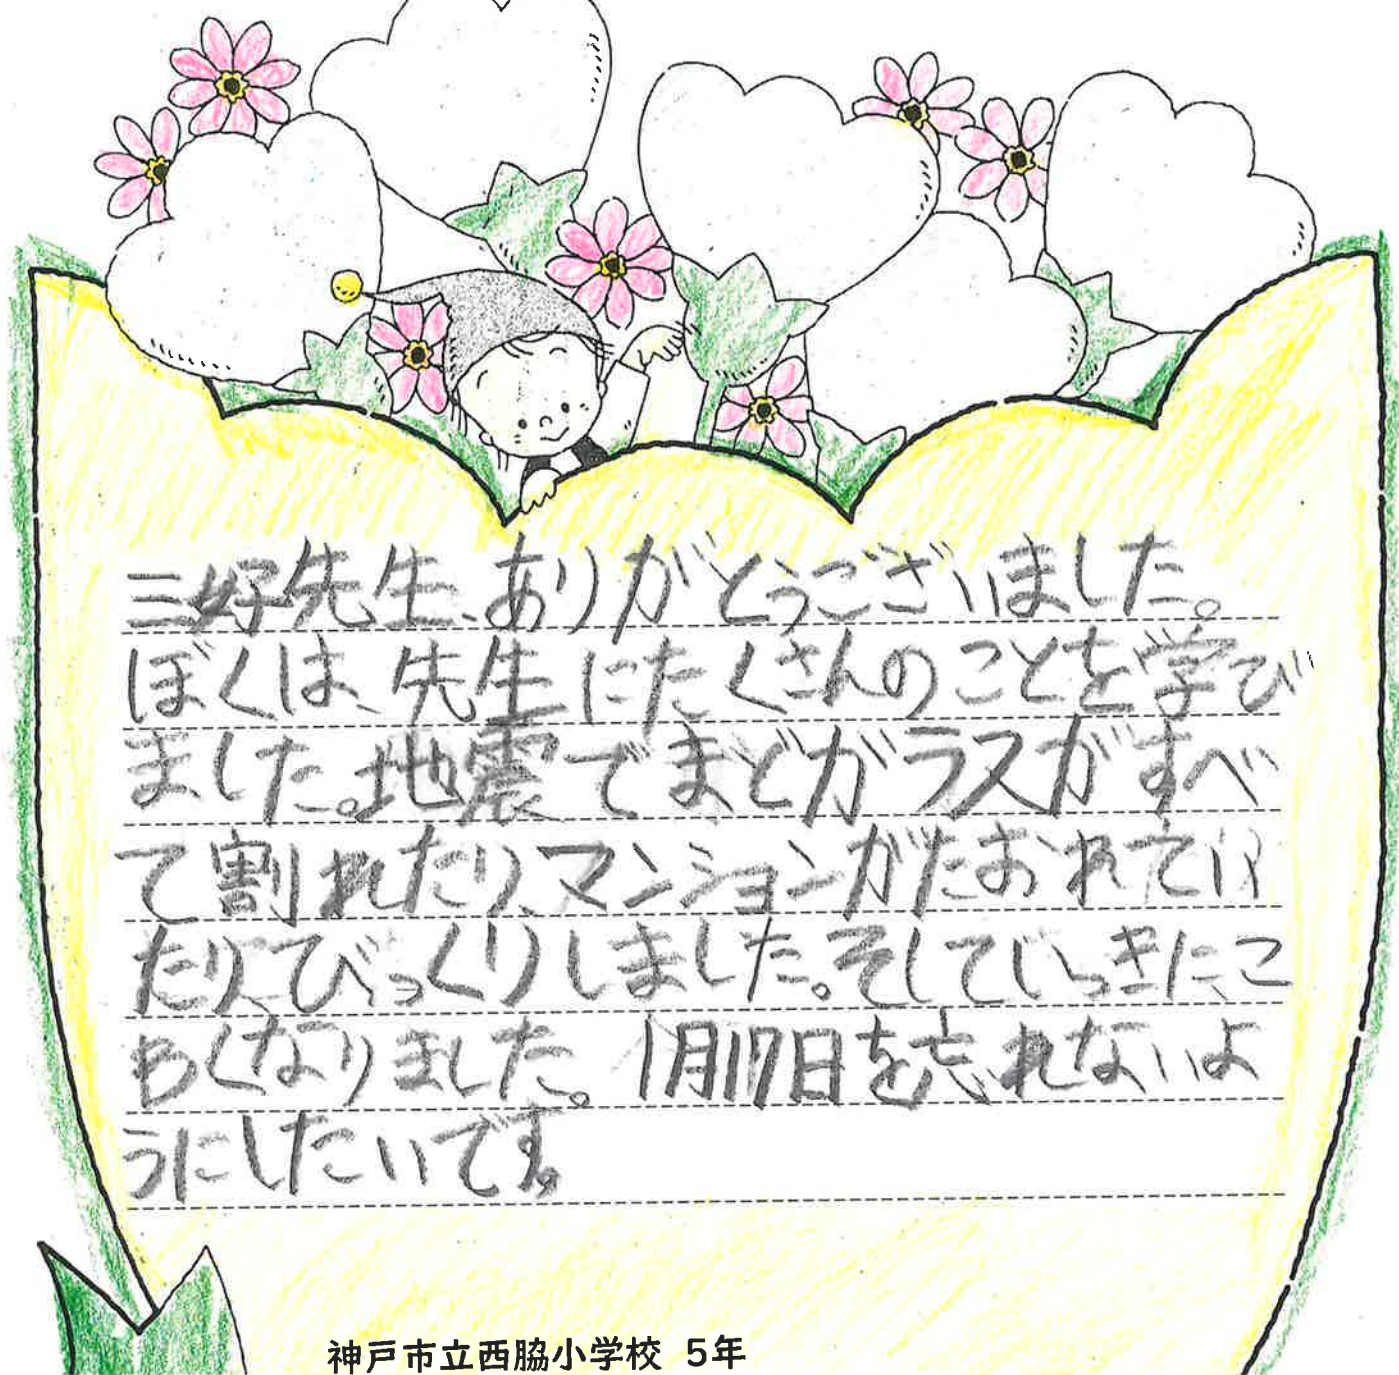 三好先生、ありがとうございました。
ぼくは、先生にたくさんのことを学び
ました。地震でまどガラスがすべ
て割れたり、マンションがたおれてい
たり、びっくりしました。そしていっきにこ
わくなりました。1月17日を忘れないよ
うにしたいです。
神戸市立西脇小学校 5年